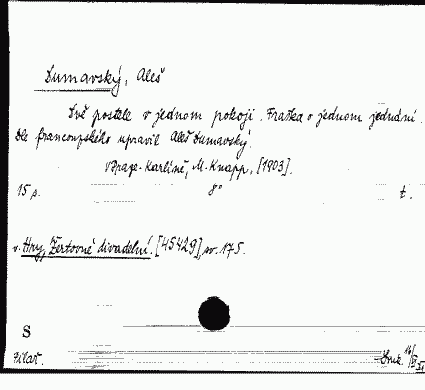 Dumavský, Aleš
Dvě postele v jednom pokoji. Fraška o jednom jednání.
Dle francouzského upravil Aleš Dumavský.
V Praze-Karlíně, M. Knapp, [1903].
15 s. 8° t.
v. Hry, Žertovné divadelní. [45429], sv. 175.
S